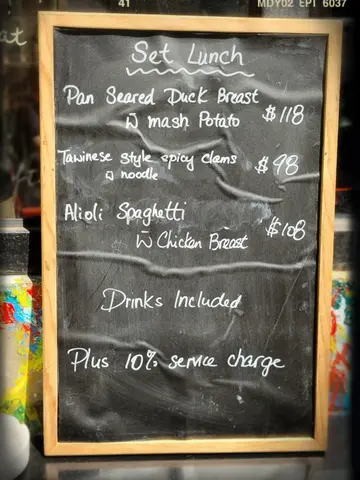 41
MDY02 EPT 6037
at
Set Lunch
Pan Seared Duck Breast
w̄ mash Potato $118
Tawinese style spicy clams $98
w̄ noodle
Alioli Spaghetti
w̄ Chicken Breast $108
Drinks Included
Plus 10% service charge